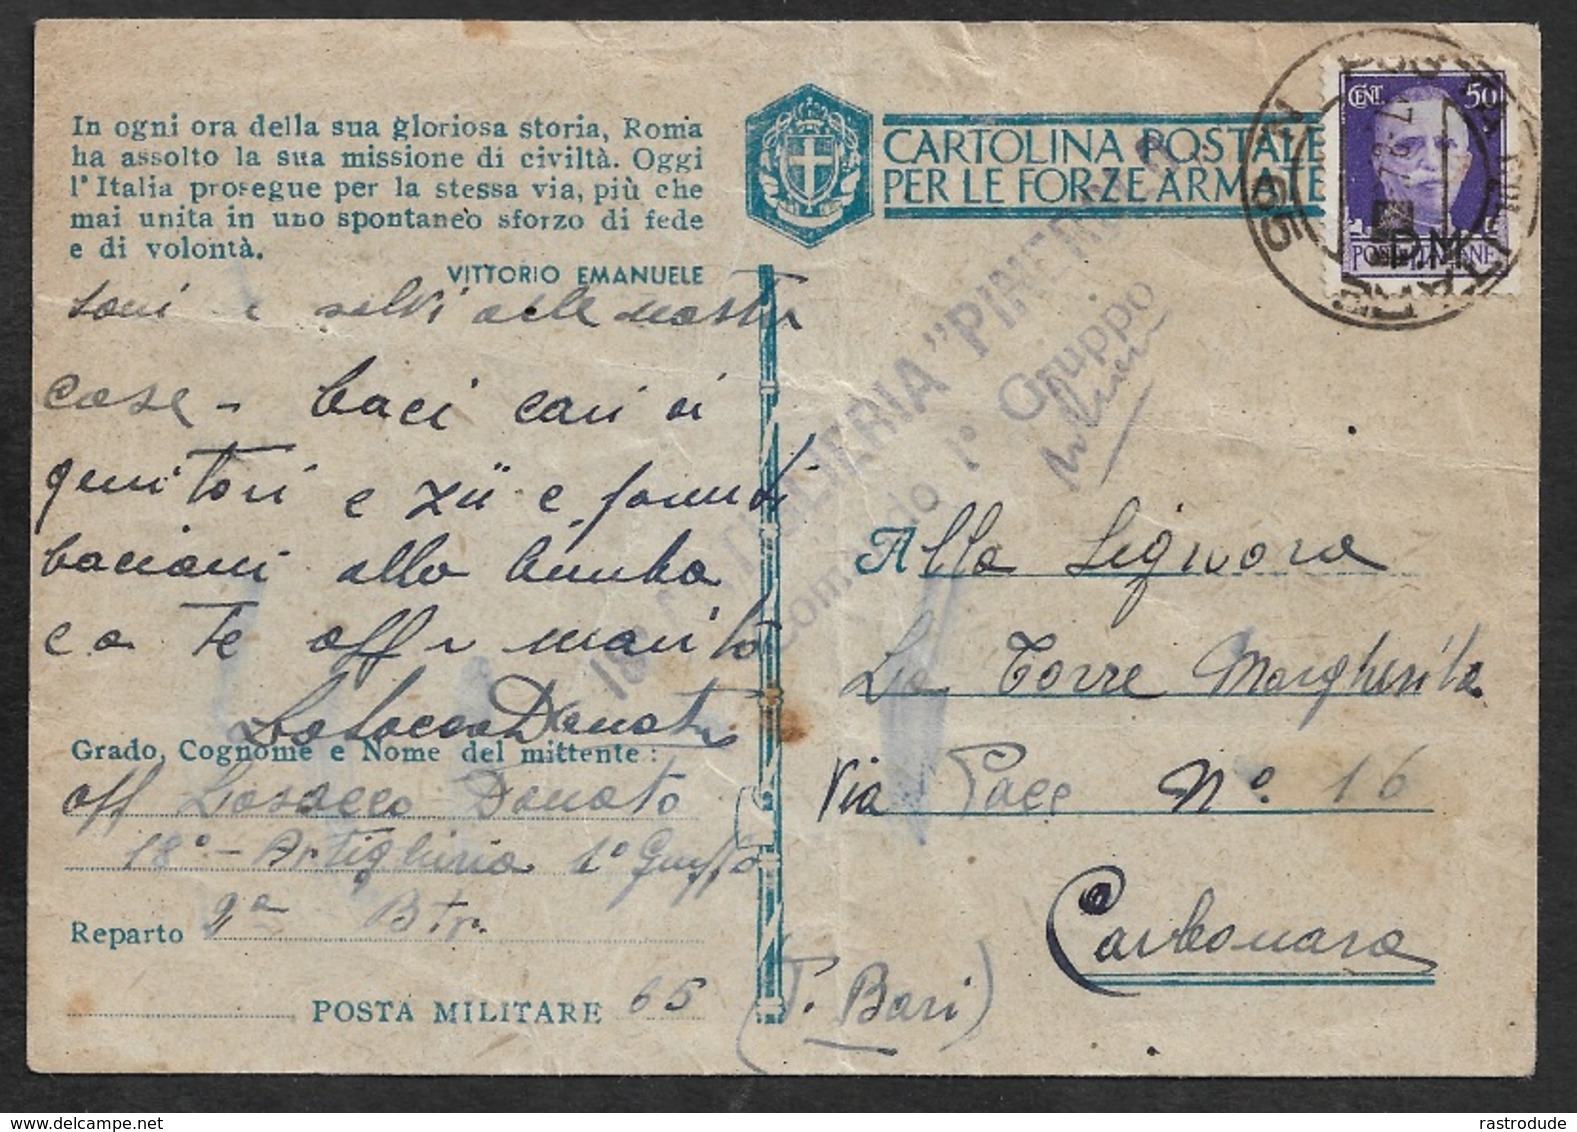 In ogni ora della sua gloriosa storia, Roma
ha assolto la sua missione di civiltà. Oggi
l'Italia prosegue per la stessa via, più che
mai unita in uno spontaneo sforzo di fede
e di volontà.
VITTORIO EMANUELE
CARTOLINA POSTALE
PER LE FORZE ARMATE
CENT. 50
P.M.
POSTE ITALIANE
65
18° ARTIGLIERIA "PINEROLO"
Comando 1° Gruppo
e salvi nelle nostre
case - baci cari ai
genitori e zii e
baciami alla bimba
e a te aff marito
Losacco Donato
Grado, Cognome e Nome del mittente:
aff Losacco Donato
18° - Artiglieria 1° Gruppo
Reparto 2a Btr.
POSTA MILITARE 65
Alla Signora
La Torre Margherita
Via Pace No. 16
Carbonara
(P. Bari)
rastrodude